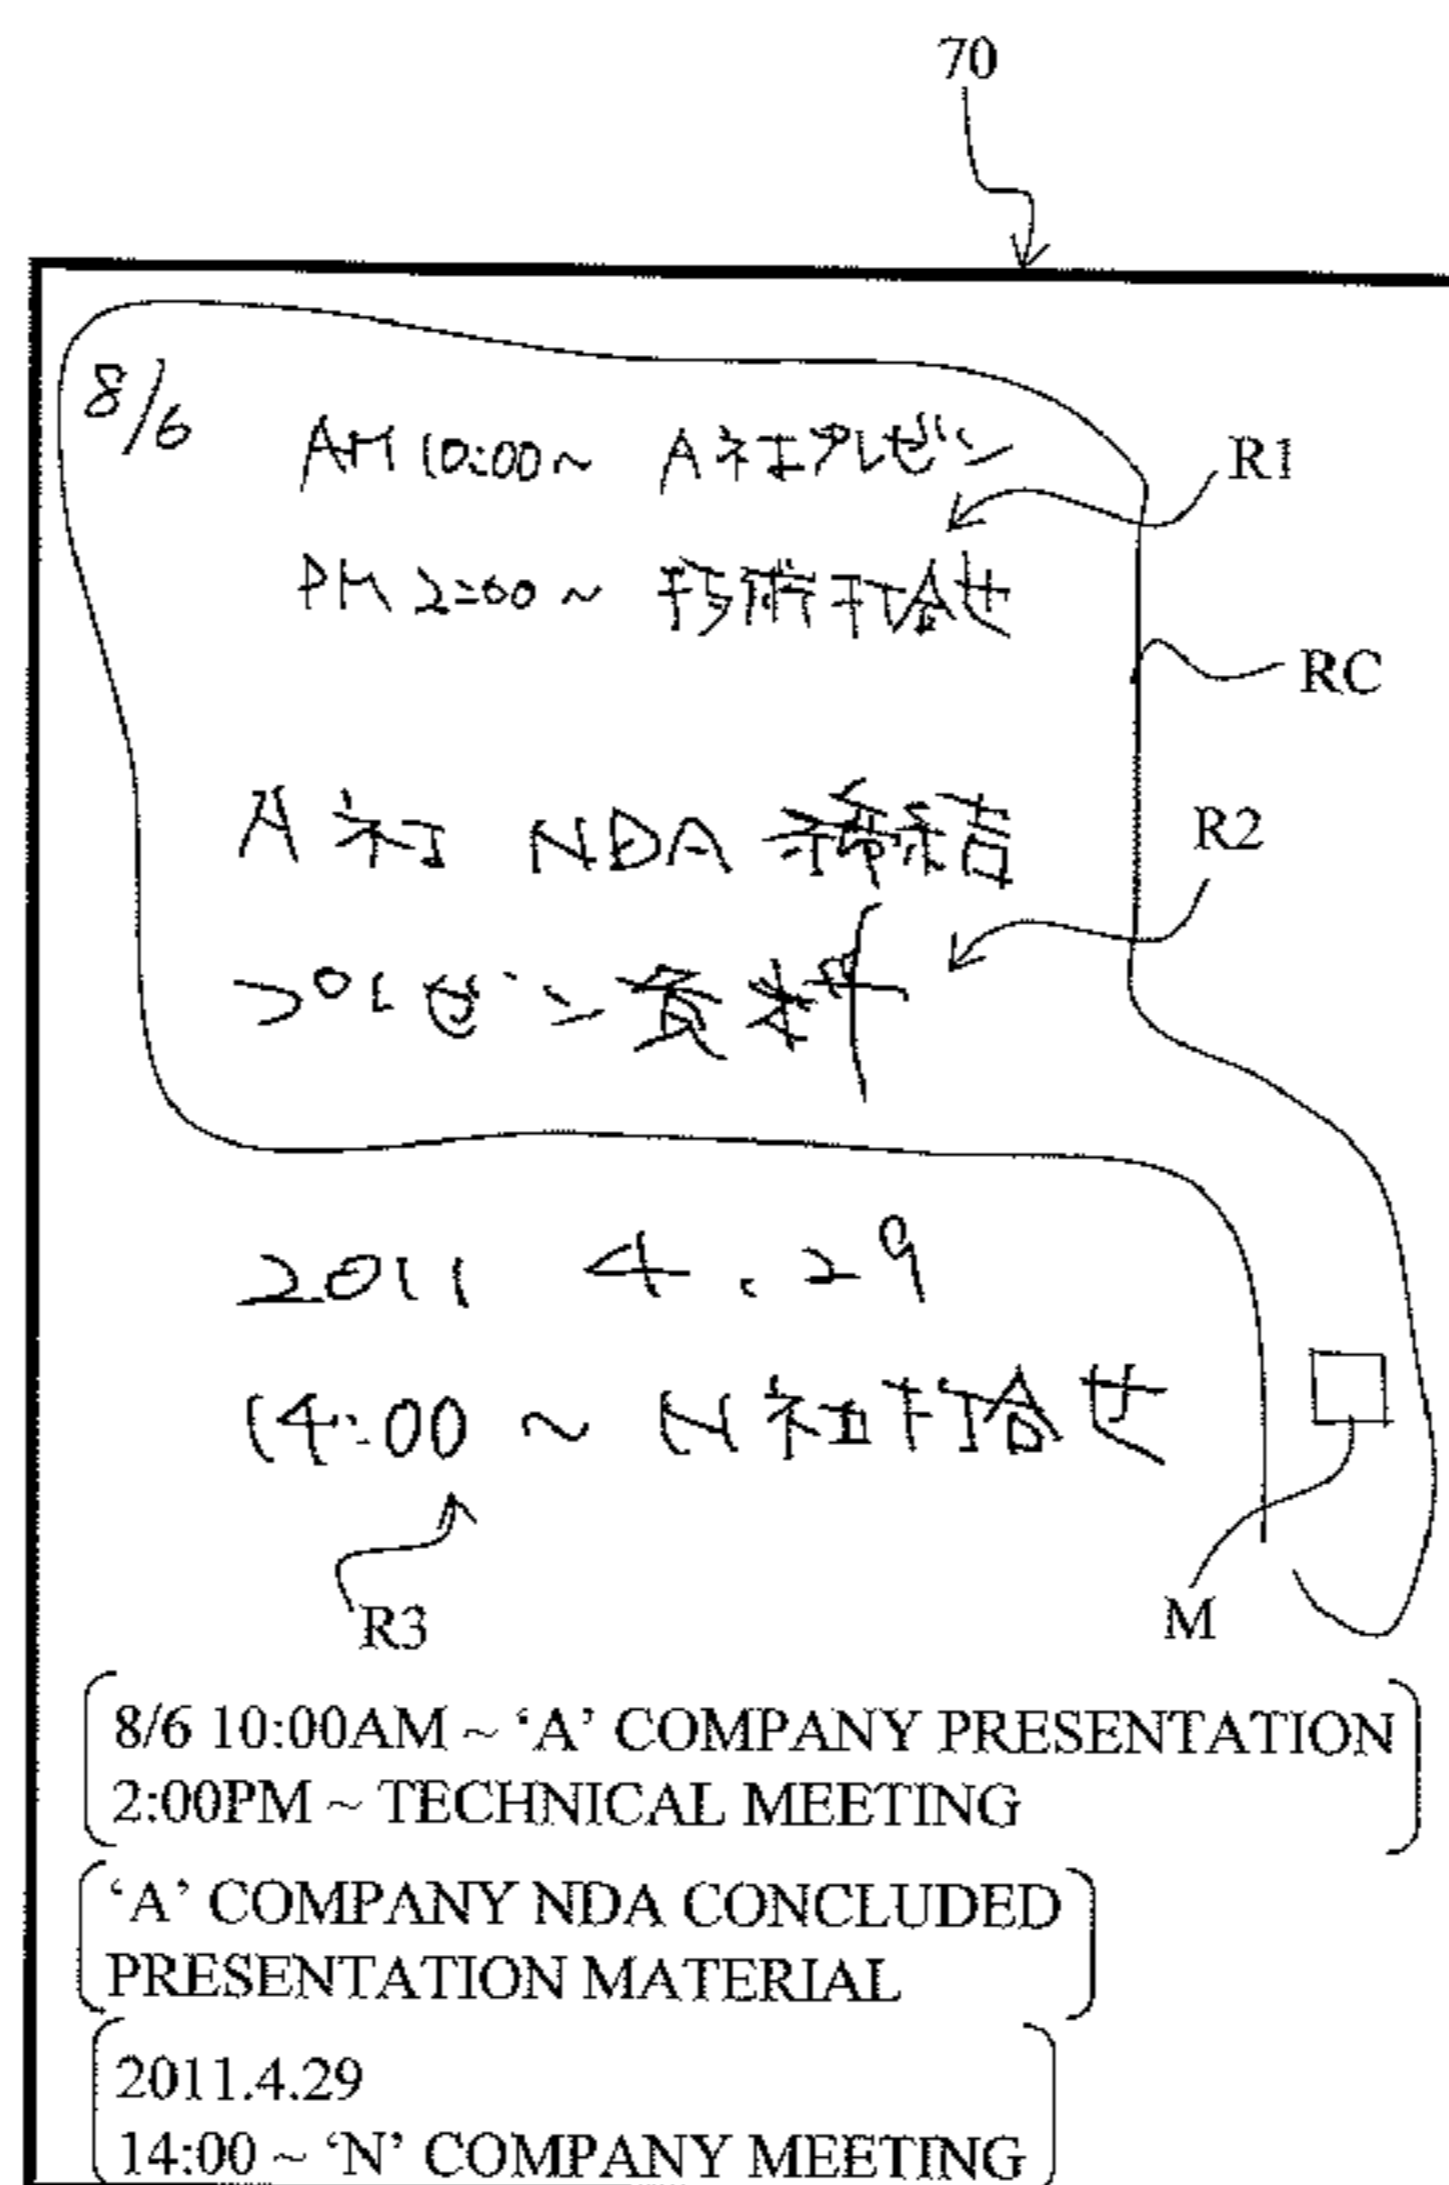 70
8/6
AM 10:00～ A社プレゼン
R1
PM 2:00～ 技術打合せ
RC
A社 NDA 締結
R2
プレゼン資料
2011 4.29
14:00～ N社打合せ
R3
M
8/6 10:00AM ~ ‘A’ COMPANY PRESENTATION
2:00PM ~ TECHNICAL MEETING
‘A’ COMPANY NDA CONCLUDED
PRESENTATION MATERIAL
2011.4.29
14:00 ~ ‘N’ COMPANY MEETING